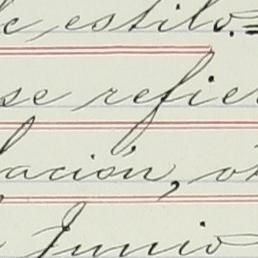 e estilo.=
se refier
lación, ot
Junio